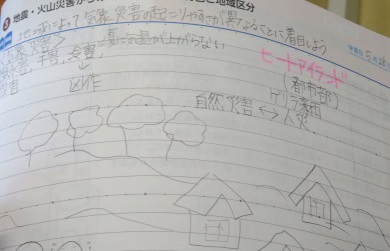 地震・火山災害から
と地域区分
地域によって気象災害の起こりやすさが異なることに着目しよう
夏に気温が上がらない
干害
凶作
ヒートアイランド
(都市部)
ゲリラ豪雨
自然災害↔人災